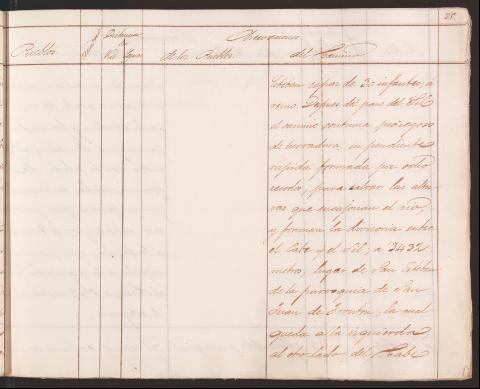 28.
Observaciones
Pueblos
Distancia
de
de los Pueblos
del Camino
Esteban capaz de 30 infantes, á
remo. Despues del paso del Sil
el camino continua
de herradura, en pendiente
rápida formada por ocho
recodos, para salvar las altu-
ras que encajonan el rio,
y forman la divisoria entre
el Cabe y el Sil, a 3432
metros, lugar de San Esteban
de la parroquia de San
Juan de la cual
queda a la izquierda,
al otro lado del Cabe